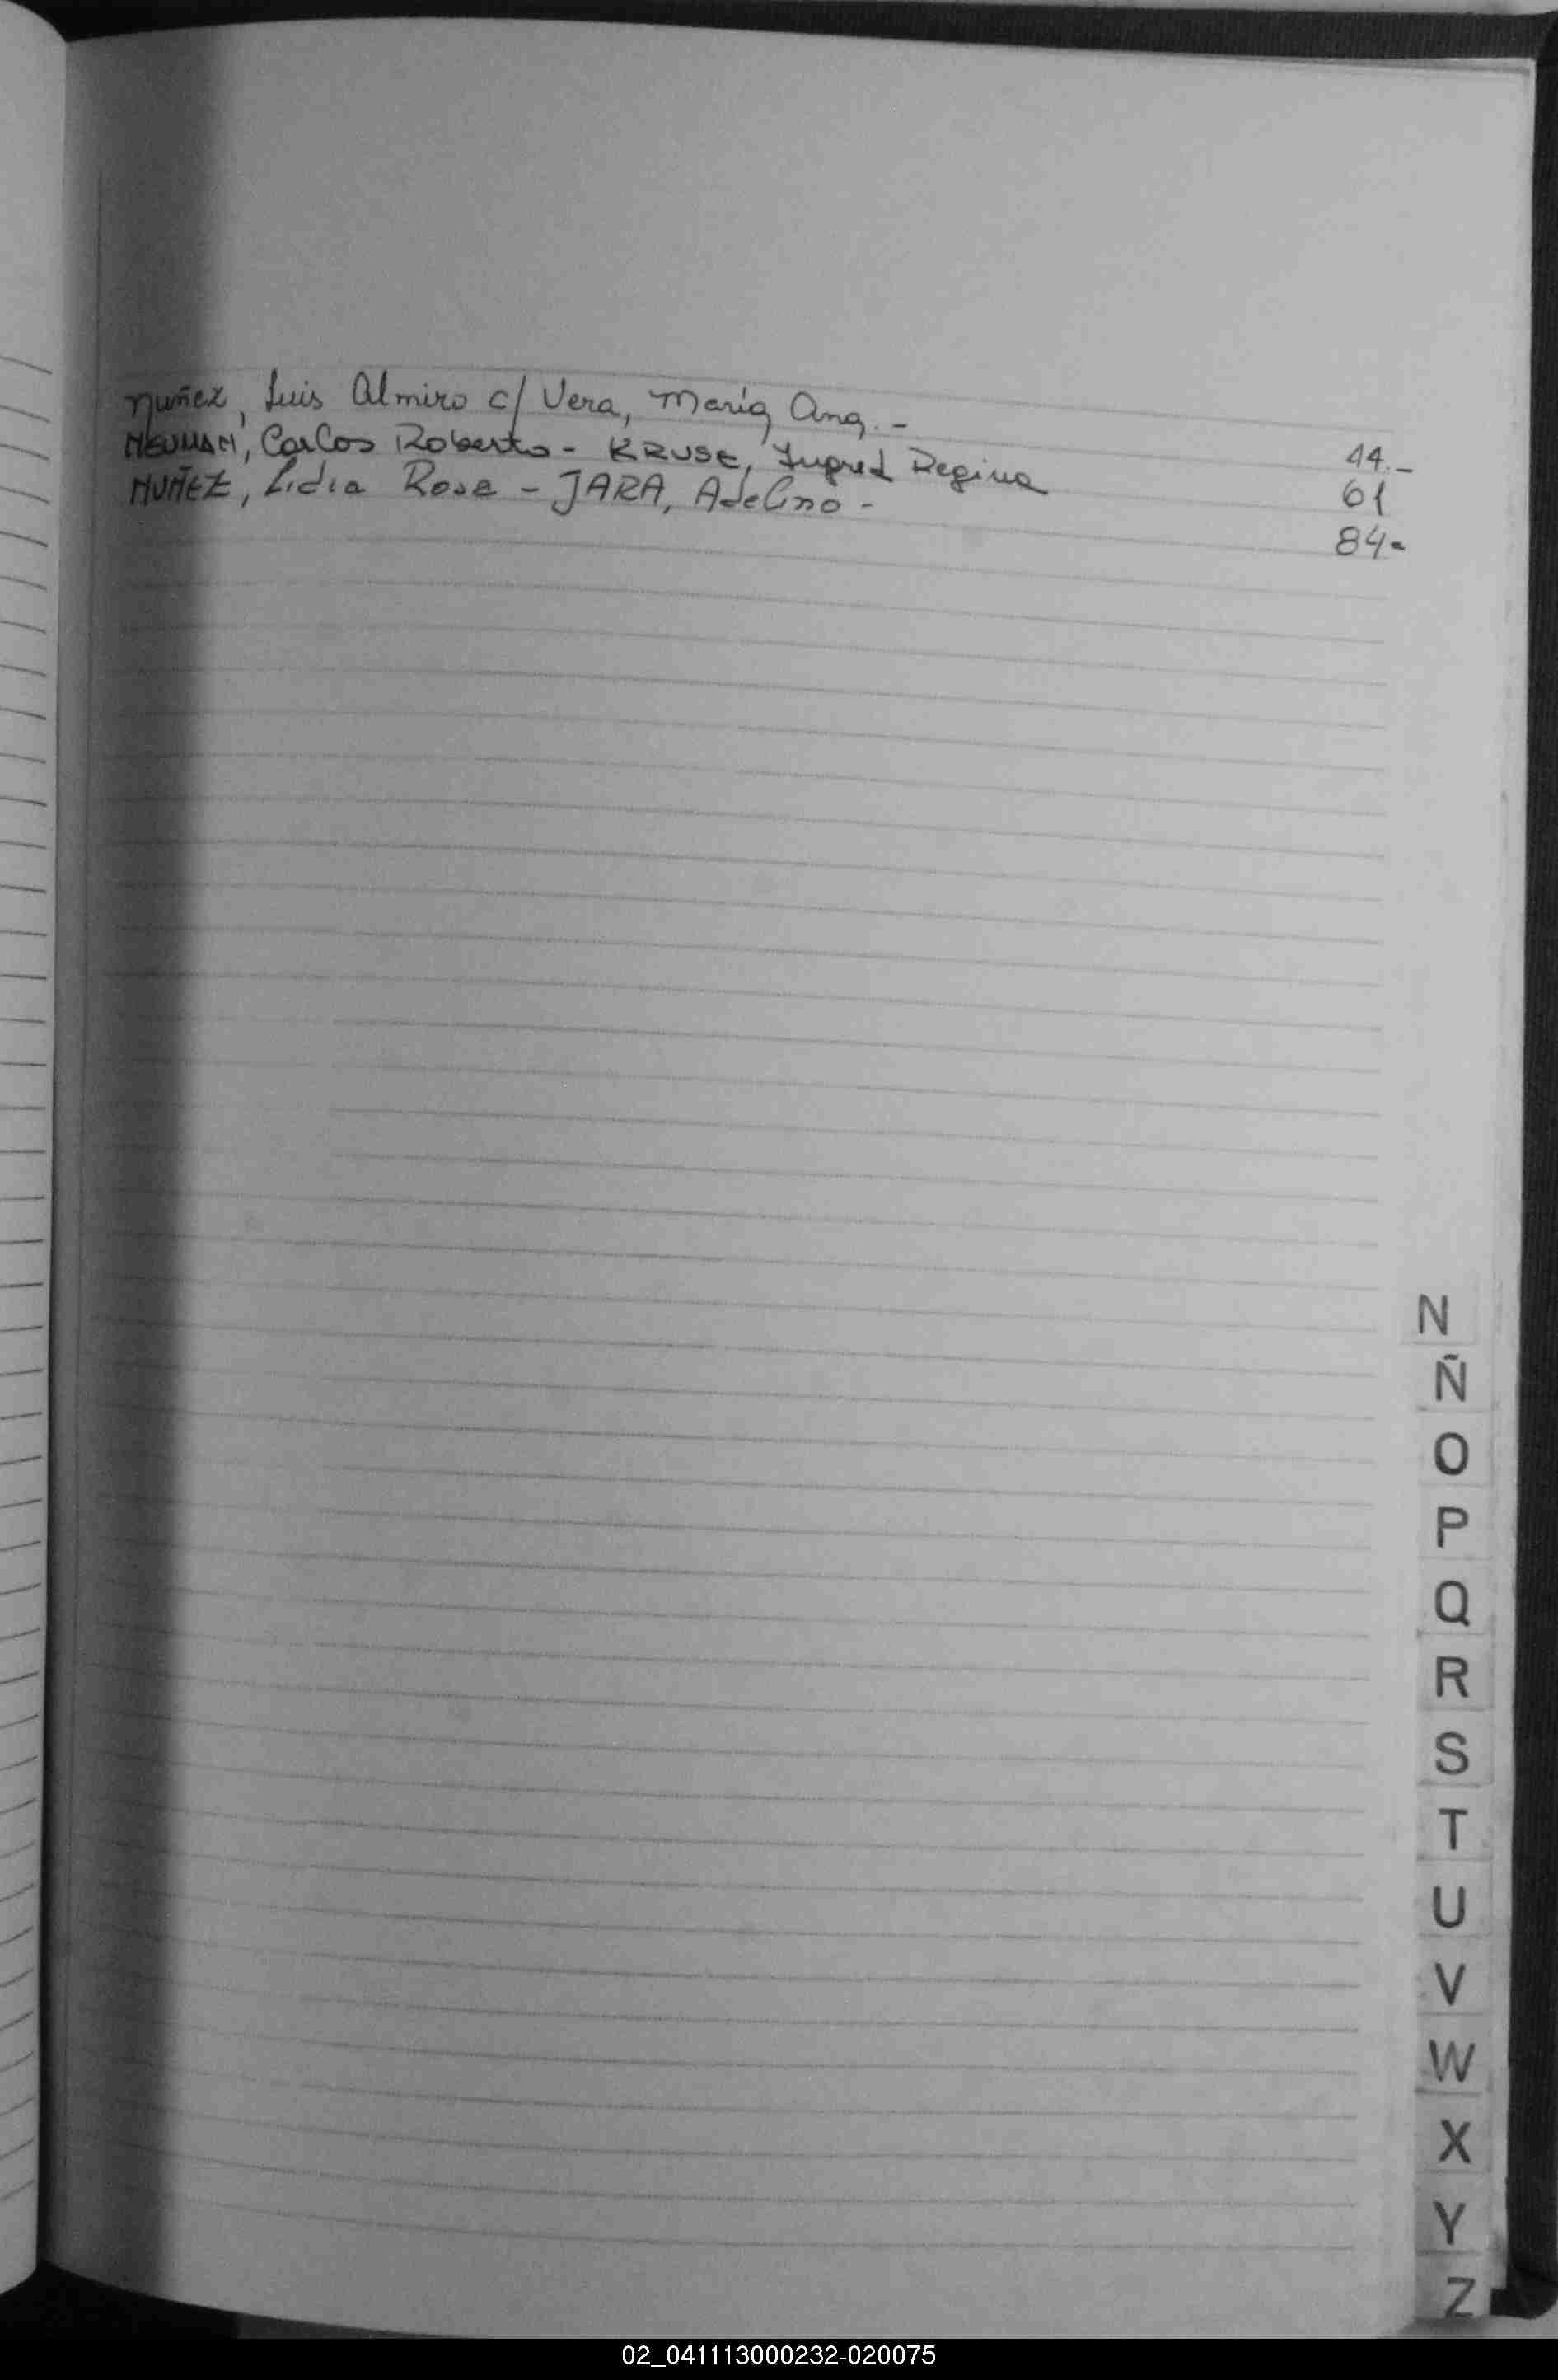 Nuñez, Luis Almiro c/ Vera, María Ana.- 44.-
NEUMAN, Carlos Roberto - KRUSE, Ingrid Regina 61
NUÑEZ, Lidia Rosa - JARA, Adelino - 84-
N
Ñ
O
P
Q
R
S
T
U
V
W
X
Y
Z
02_041113000232-020075